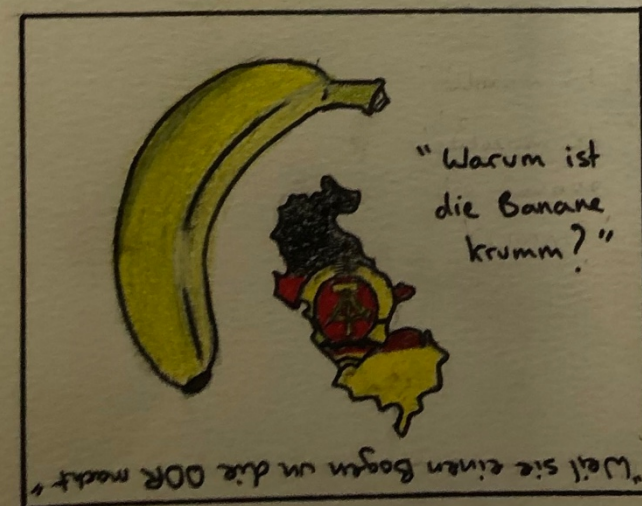 "Warum ist
die Banane
krumm?"
"Weil sie einen Bogen um die DDR macht"